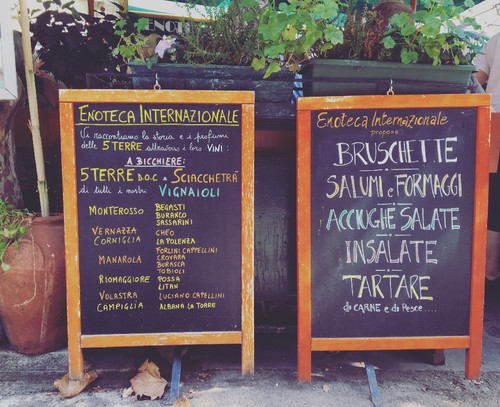 ENOTECA INTERNAZIONALE
Vi raccontiamo la storia e i profumi
delle 5 TERRE attraverso i loro VINI:
A BICCHIERE:
5 TERRE D.O.C. e SCIACCHETRÀ
di tutti i nostri VIGNAIOLI
MONTEROSSO BEGASTI
BURANCO
SASSARINI
VERNAZZA CHEO
CORNIGLIA LA POLENZA
MANAROLA FORLINI CAPPELLINI
CROVARA
BURASCA
TOBIOLI
RIOMAGGIORE POSSA
LITAN
VOLASTRA LUCIANO CAPELLINI
CAMPIGLIA ALBANA LA TORRE
Enoteca Internazionale
propone:
BRUSCHETTE
SALUMI e FORMAGGI
ACCIUGHE SALATE
INSALATE
TARTARE
di CARNE e di Pesce....